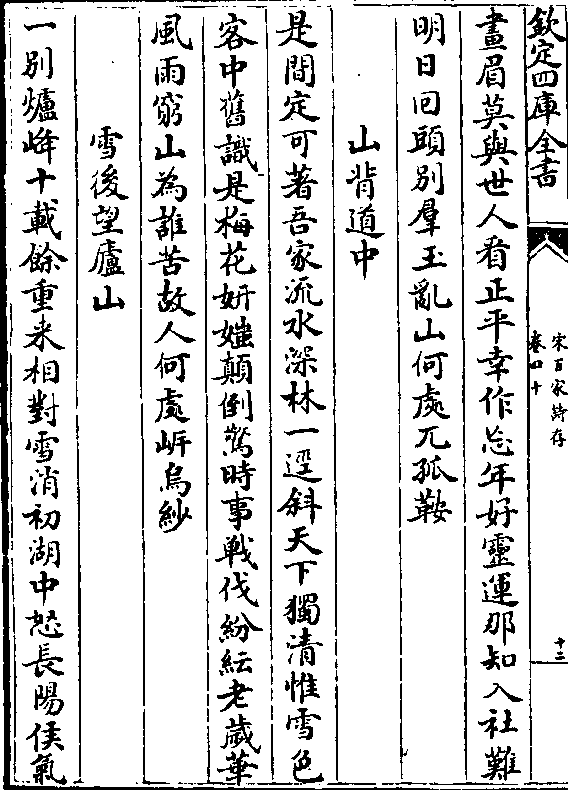 欽定四庫全書
宋百家詩存
卷四十
十三
畫眉莫與世人看正平幸作忘年好靈運那知入社難
明日回頭別羣玉亂山何處兀孤鞍
山背道中
是間定可著吾家流水深林一逕斜天下獨清惟雪色
客中舊識是梅花妍媸顛倒驚時事戰伐紛紜老歲華
風雨窮山為誰苦故人何處岸烏紗
雪後望廬山
一別爐峰十載餘重来相對雪消初湖中怒長陽侯氣